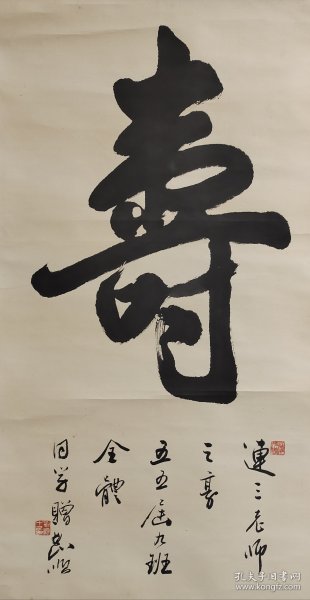 壽
連三老师
之寿
五五届九班
全體
同学赠
孔夫子旧书网
www.kongfz.com